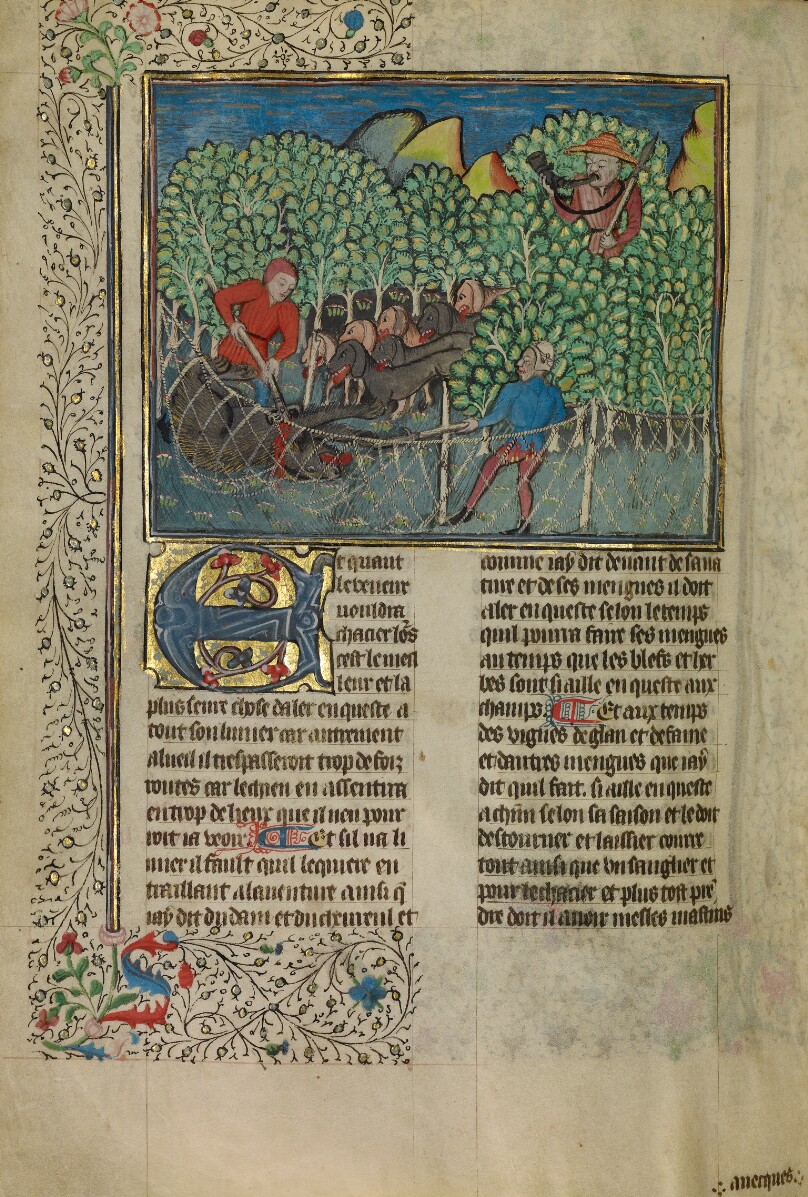 Et quant
le veneur
vouldra
chacier lo̅s
cest le meil
leur et la
plus seure chose daler en queste a
tout son limier car autrement
alueil il trespasseroit trop de foiz
routes car le chien en assentira
en trop de lieux que il nen pour
roit ia veoir Et sil na li
mier il fault quil le quiere en
traillant alaventure ainsi q̅
iay dit du dam et du chevreul et
comme iay dit devant de sa na
ture et de ses mengues il doit
aler en queste selon le temps
quil pourra faire ses mengues
au temps que les blefs et her
bes sont si aille en queste aux
champs Et aux temps
des vignes de glan et de faine
et dautres mengues que iay
dit quil fait. si aille en queste
a chu̅n selon sa saison et le doit
destourner et laissier courre
tout ainsi que un sanglier et
pour le chacier et plus tost pre̅
dre doit il avoir mesles mastins
avecques